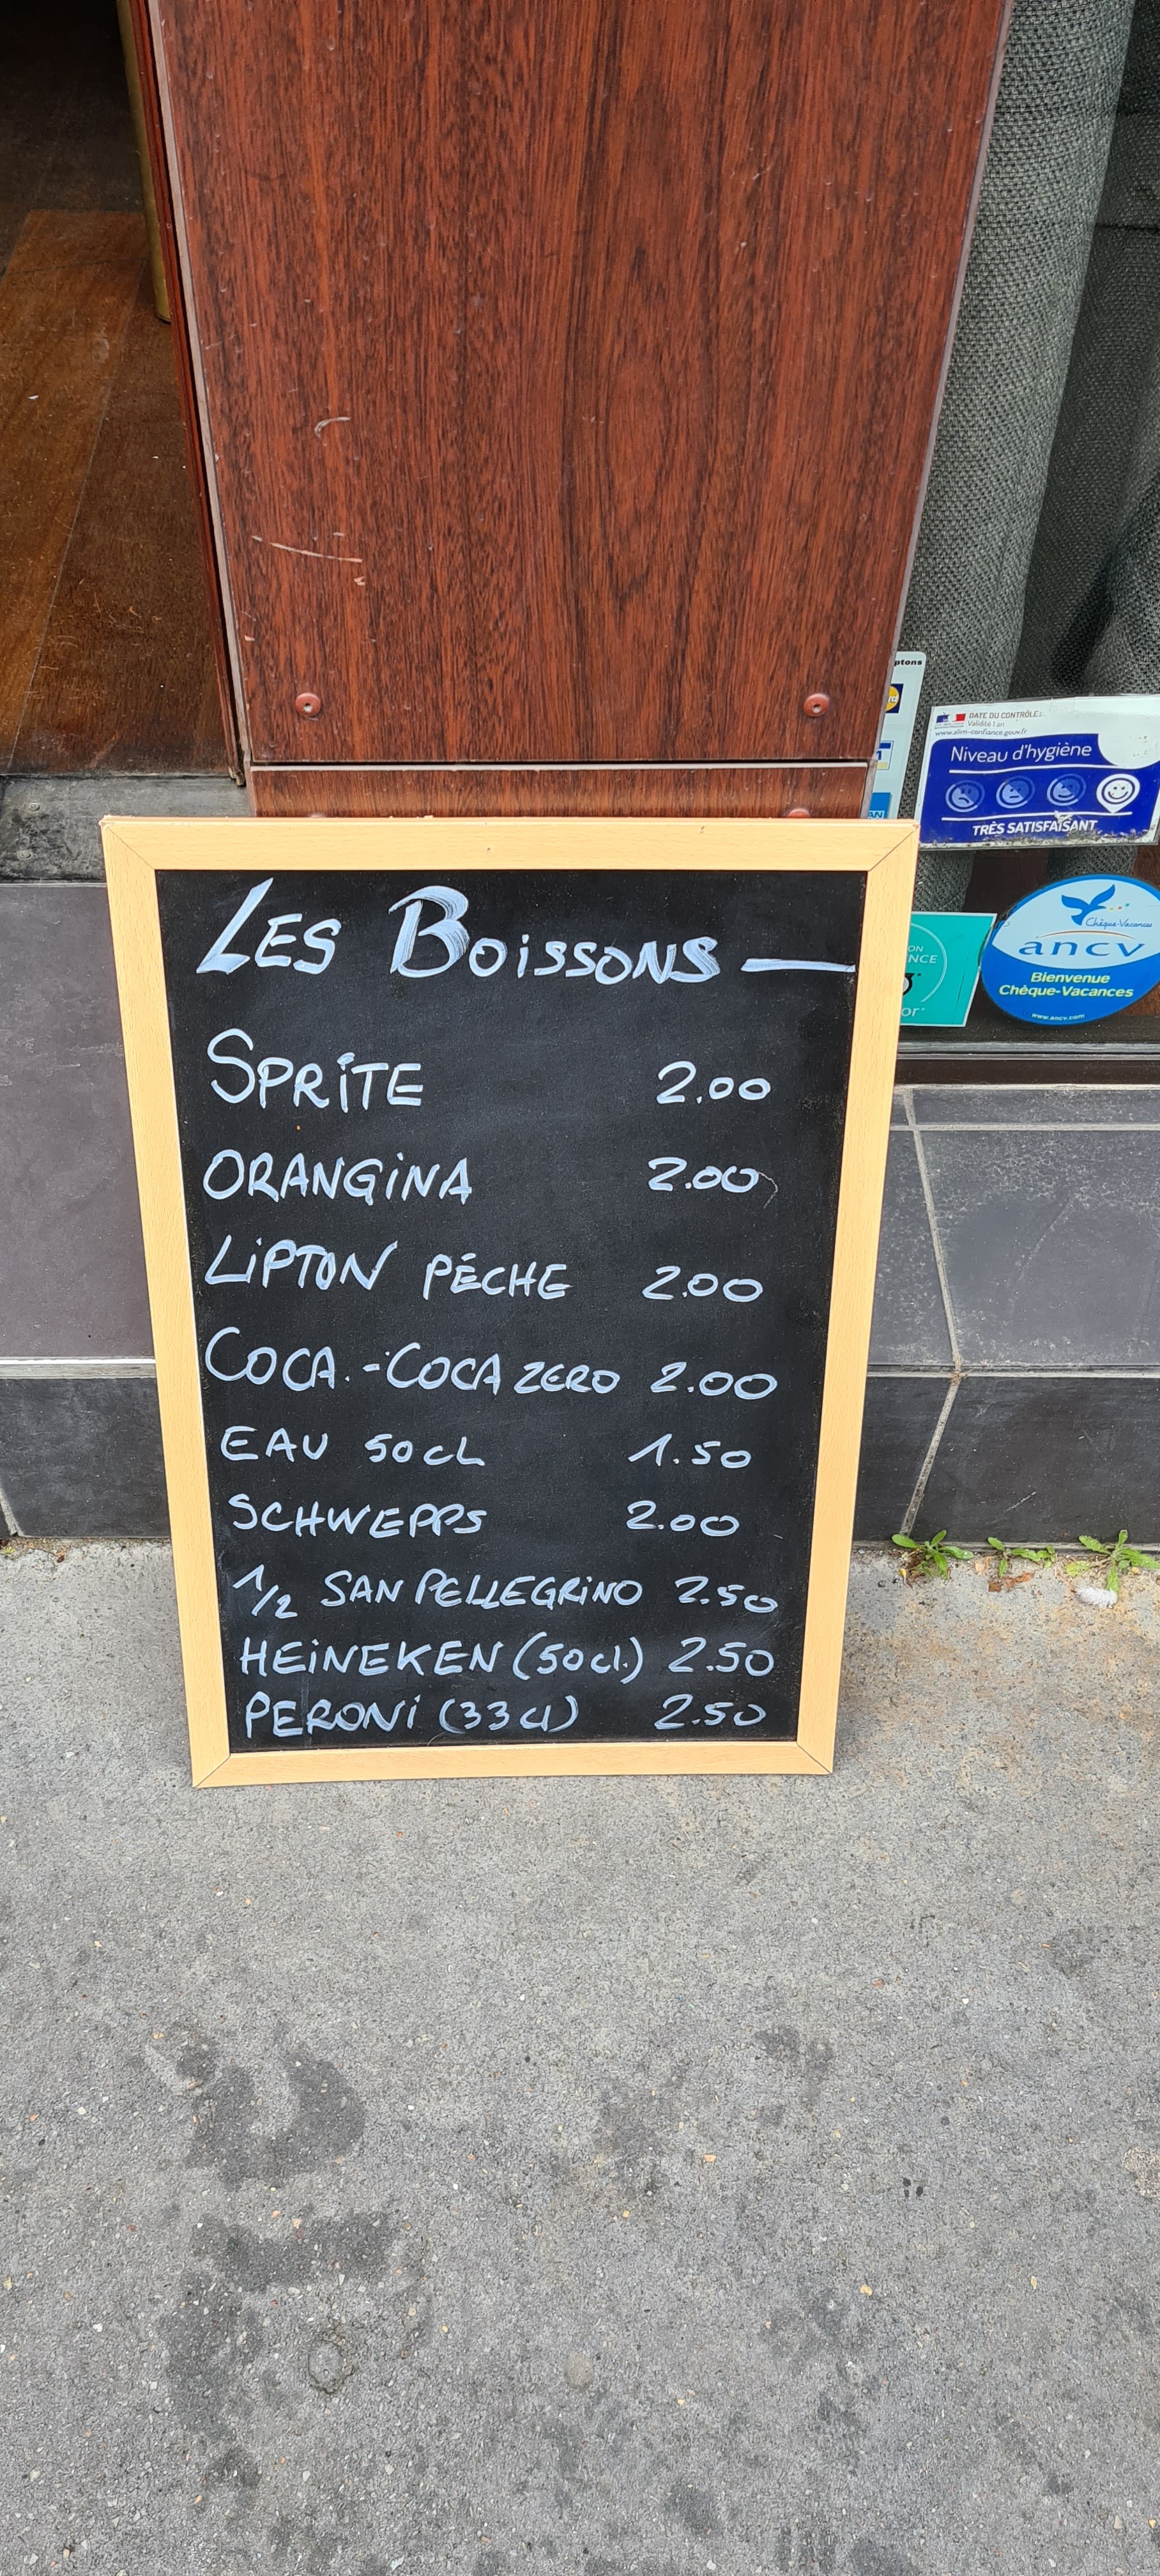 ptons
DATE DU CONTRÔLE:
Validité 1 an
www.alim-confiance.gouv.fr
Niveau d'hygiène
TRÈS SATISFAISANT
AN
LES BOISSONS —
SPRITE 2.00
ORANGINA 2.00
LIPTON PÉCHE 2.00
COCA.-COCA ZERO 2.00
EAU 50CL 1.50
SCHWEPPS 2.00
1/2 SAN PELLEGRINO 2.50
HEINEKEN (50cl.) 2.50
PERONI (33cl) 2.50
ON
NCE
or
Chèque-Vacances
ancv
Bienvenue
Chèque-Vacances
www.ancv.com